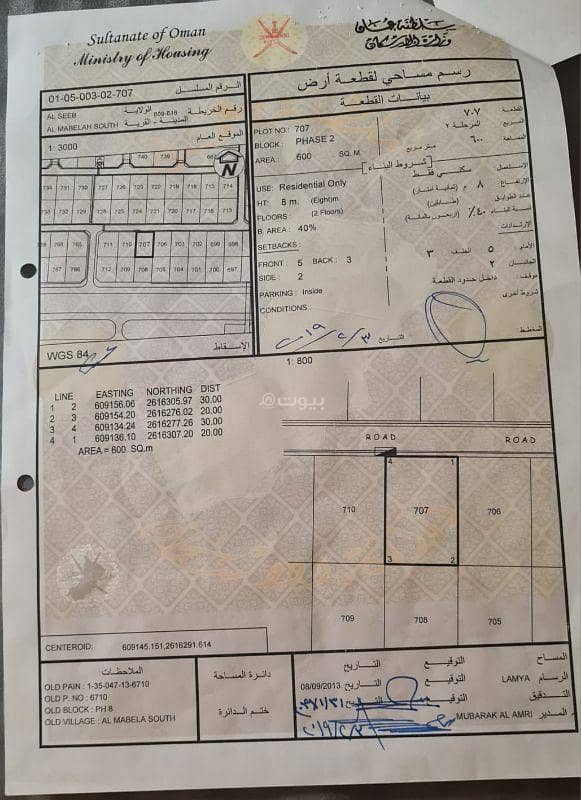 Sultanate of Oman
Ministry of Housing
سلطنة عمان
وزارة الإسكان
الرقم المسلسل
01-05-003-02-707
الولاية
AL SEEB
رقم الخريطة
659-616
المدينة - القرية
AL MABELAH SOUTH
الموقع العام
1: 3000
N
740 739
734 731 730 727 726 723 722 719 718 715 714
711 710 707 706 703 702 699 698
766 767
712 709 708 705 704 701 700 697
WGS 84
الإسقاط
رسم مساحي لقطعة أرض
بيانات القطعة
PLOT NO : 707
القطعة ٧٠٧
BLOCK : PHASE 2
المربع المرحلة ٢
AREA : 600 SQ. M.
المساحة ٦٠٠ متر مربع
شروط البناء
USE: Residential Only
الاستعمال سكني فقط
HT: 8 m. (Eight)m
الارتفاع ٨ م (ثمانية أمتار)
FLOORS : (2 Floors)
عدد الطوابق (طابقين)
B. AREA : 40%
نسبة البناء ٤٠٪ (أربعون بالمائة)
SETBACKS :
الارتدادات
FRONT : 5 BACK : 3
الأمام ٥ الخلف ٣
SIDE : 2
الجانبان ٢
PARKING : Inside
موقف: داخل حدود القطعة
CONDITIONS :
شروط أخرى
المخطط
التاريخ
1: 800
LINE EASTING NORTHING DIST
1 2 609156.06 2616305.97 30.00
2 3 609154.20 2616276.02 20.00
3 4 609134.24 2616277.26 30.00
4 1 609136.10 2616307.20 20.00
AREA = 600 SQ.m
بيوت
ROAD ROAD
4 1
710 707 706
3 2
709 708 705
CENTEROID: 609145.151,2616291.614
الملاحظات
OLD PAIN : 1-35-047-13-6710
OLD P. NO : 6710
OLD BLOCK : PH 8
OLD VILLAGE : AL MABELA SOUTH
دائرة المساحة
ختم الدائرة
المساح التوقيع التاريخ
الرسام LAMYA التوقيع التاريخ 08/09/2013
التدقيق التوقيع التاريخ
المدير MUBARAK AL AMRI